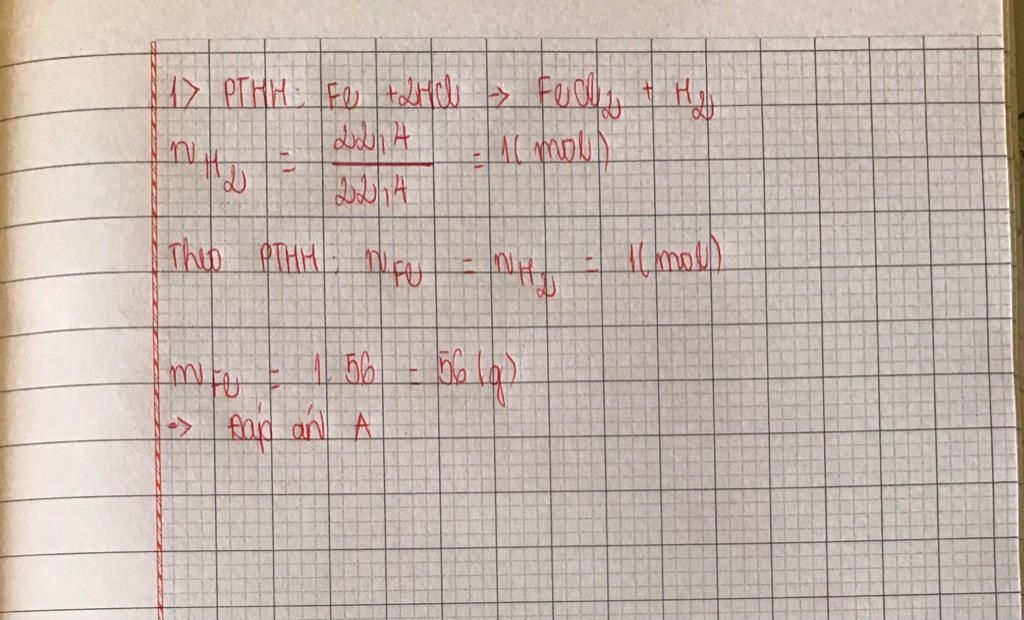 1> PTHH: Fe + 2HCl → FeCl₂ + H₂
n_H₂ = 22,4/22,4 = 1(mol)
Theo PTHH: n_Fe = n_H₂ = 1(mol)
m_Fe = 1.56 = 56(g)
→ Đáp án A